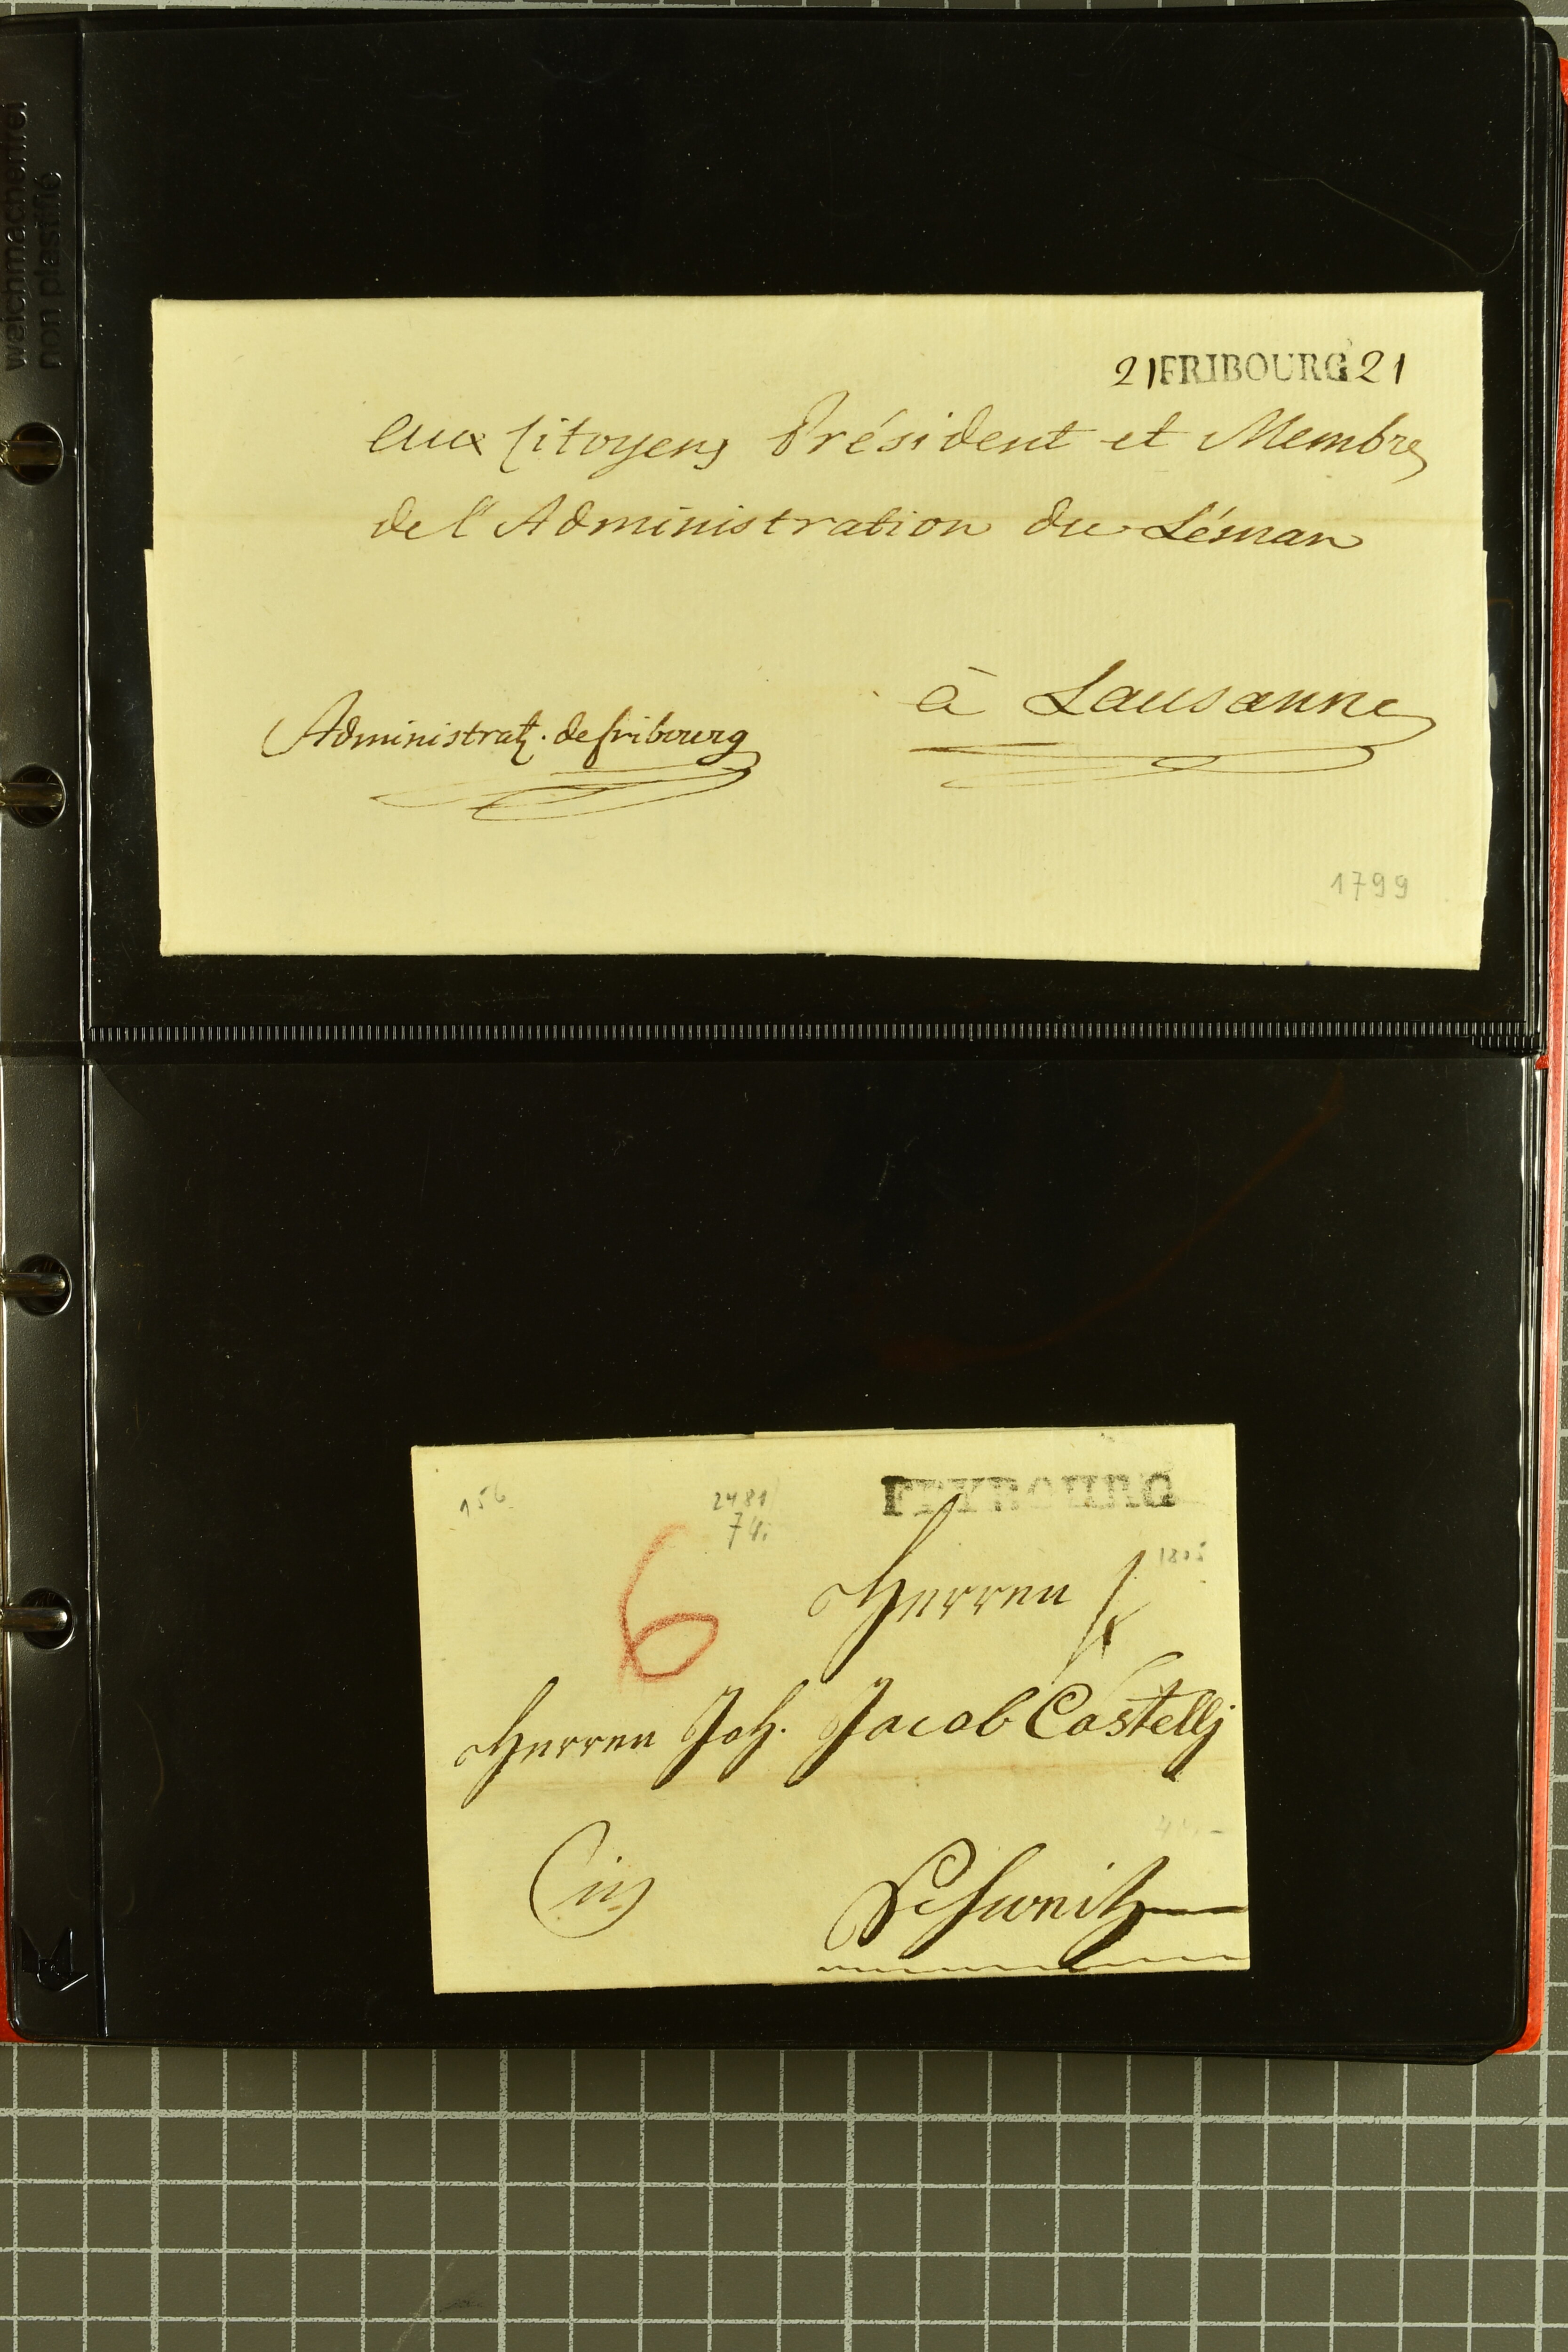 weichmacherfrei
non plastifié
21 FRIBOURG 21
Aux Citoyens Président et Membres
de l'Administration du Léman
à Lausanne
Administrat. de fribourg
1799
156
2481
74.
FRYBOURG
1805
6
Herren
Herren Joh. Jacob Castellj
in
Schweitz